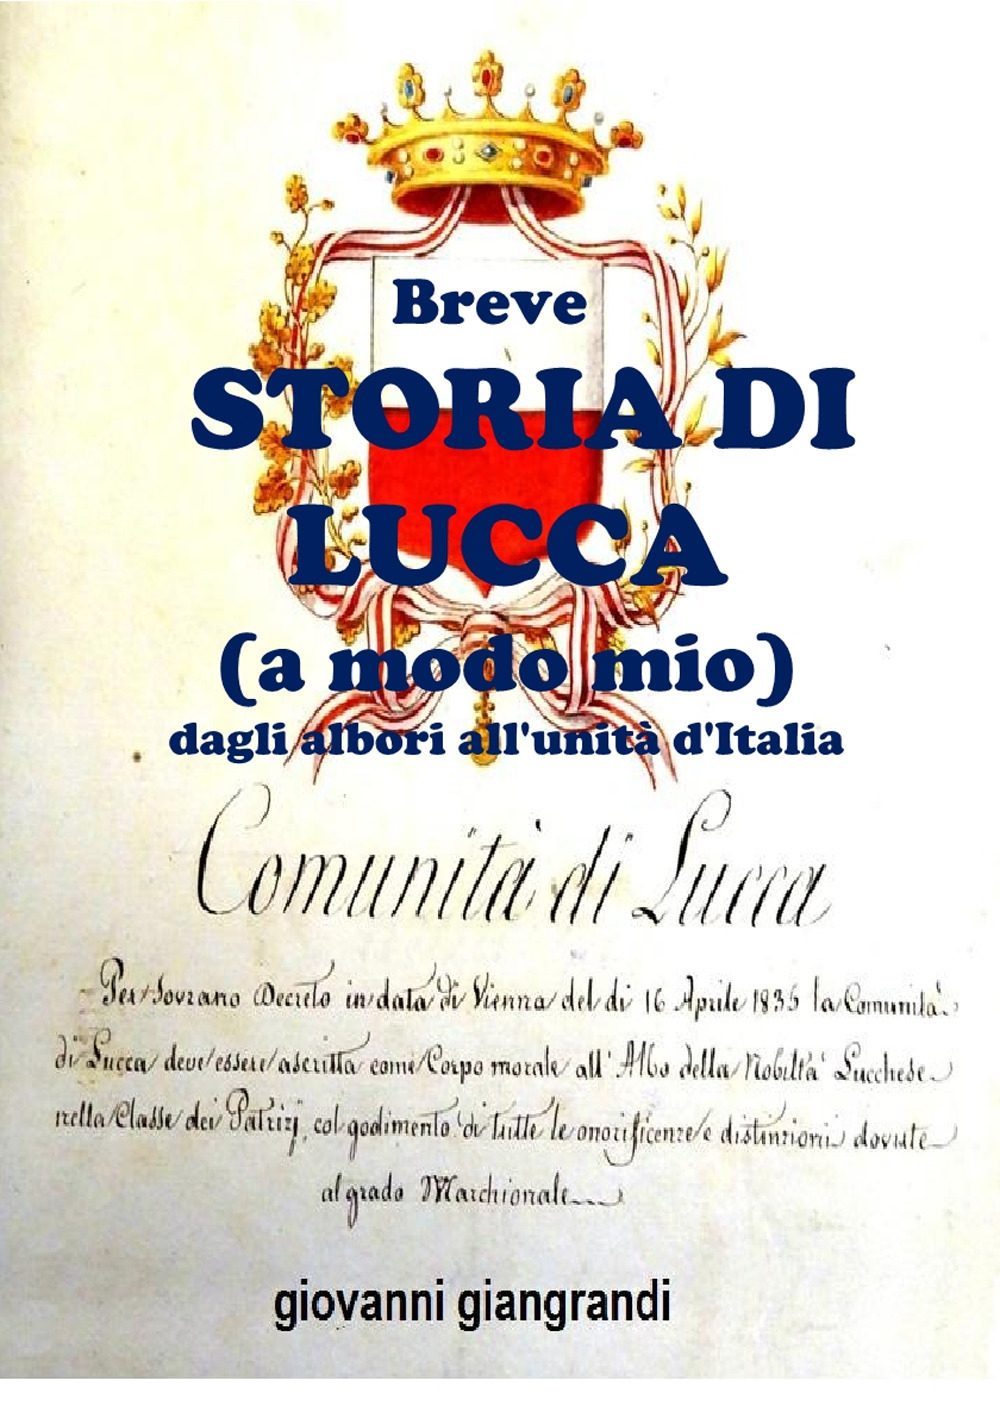 Breve
STORIA DI
LUCCA
(a modo mio)
dagli albori all'unità d'Italia
Comunità di Lucca
Per Sovrano Decreto in data di Vienna del dì 16 Aprile 1835 la Comunità
di Lucca deve essere ascritta come Corpo morale all' Albo della Nobiltà Lucchese
nella Classe dei Patrizj, col godimento di tutte le onorificenze e distinzioni dovute
al grado Marchionale
giovanni giangrandi